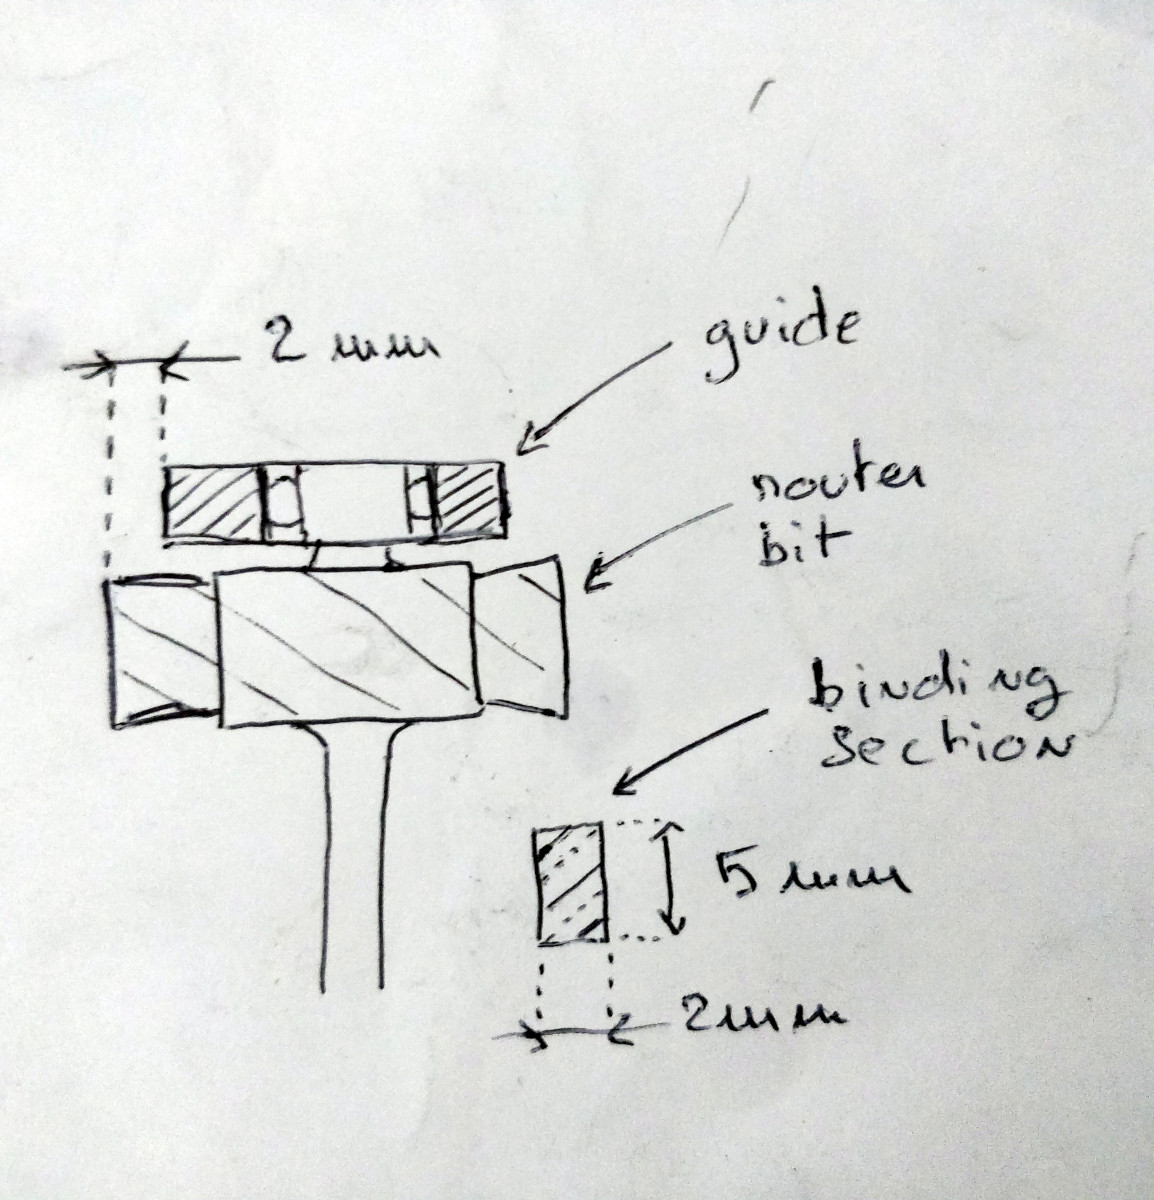 2 mm
guide
router
bit
binding
section
5 mm
2mm